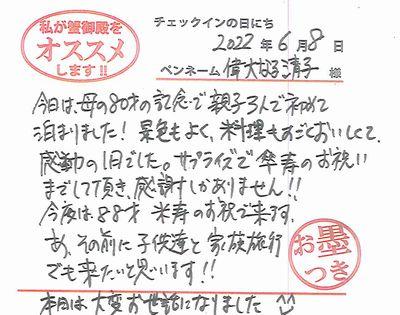 私が蟹御殿を
オススメ
します!!
チェックインの日にち
2022年6月8日
ペンネーム 偉大なる清子 様
今日は、母の80才の記念で親子3人で初めて
泊まりました! 景色もよく、料理もすごくおいしくて、
感動の1日でした。サプライズで傘寿のお祝い
までして頂き、感謝しかありません!!
今度は88才 米寿のお祝で来ます。
あ、その前に子供達と家族旅行
でも来たいと思います!!
本日は大変お世話になりました
お墨
つき